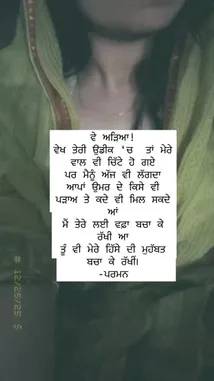 ਵੇ ਅੜਿਆ!
ਵੇਖ ਤੇਰੀ ਉਡੀਕ 'ਚ ਤਾਂ ਮੇਰੇ
ਵਾਲ ਵੀ ਚਿੱਟੇ ਹੋ ਗਏ
ਪਰ ਮੈਨੂੰ ਅੱਜ ਵੀ ਲੱਗਦਾ
ਆਪਾਂ ਉਮਰ ਦੇ ਕਿਸੇ ਵੀ
ਪੜਾਅ ਤੇ ਕਦੇ ਵੀ ਮਿਲ ਸਕਦੇ
ਆਂ
ਮੈਂ ਤੇਰੇ ਲਈ ਵਫ਼ਾ ਬਚਾ ਕੇ
ਰੱਖੀ ਆ
ਤੂੰ ਵੀ ਮੇਰੇ ਹਿੱਸੇ ਦੀ ਮੁਹੱਬਤ
ਬਚਾ ਕੇ ਰੱਖੀਂ।
-ਪਰਮਨ
# 12/25/25 $